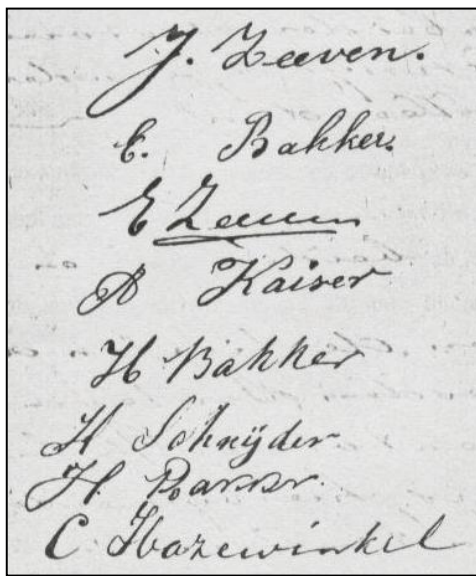 J. Zeeven.
E. Bakker.
E Zeeven
A Kaiser
H Bakker
H Schnijder
H.
C Hazewinkel